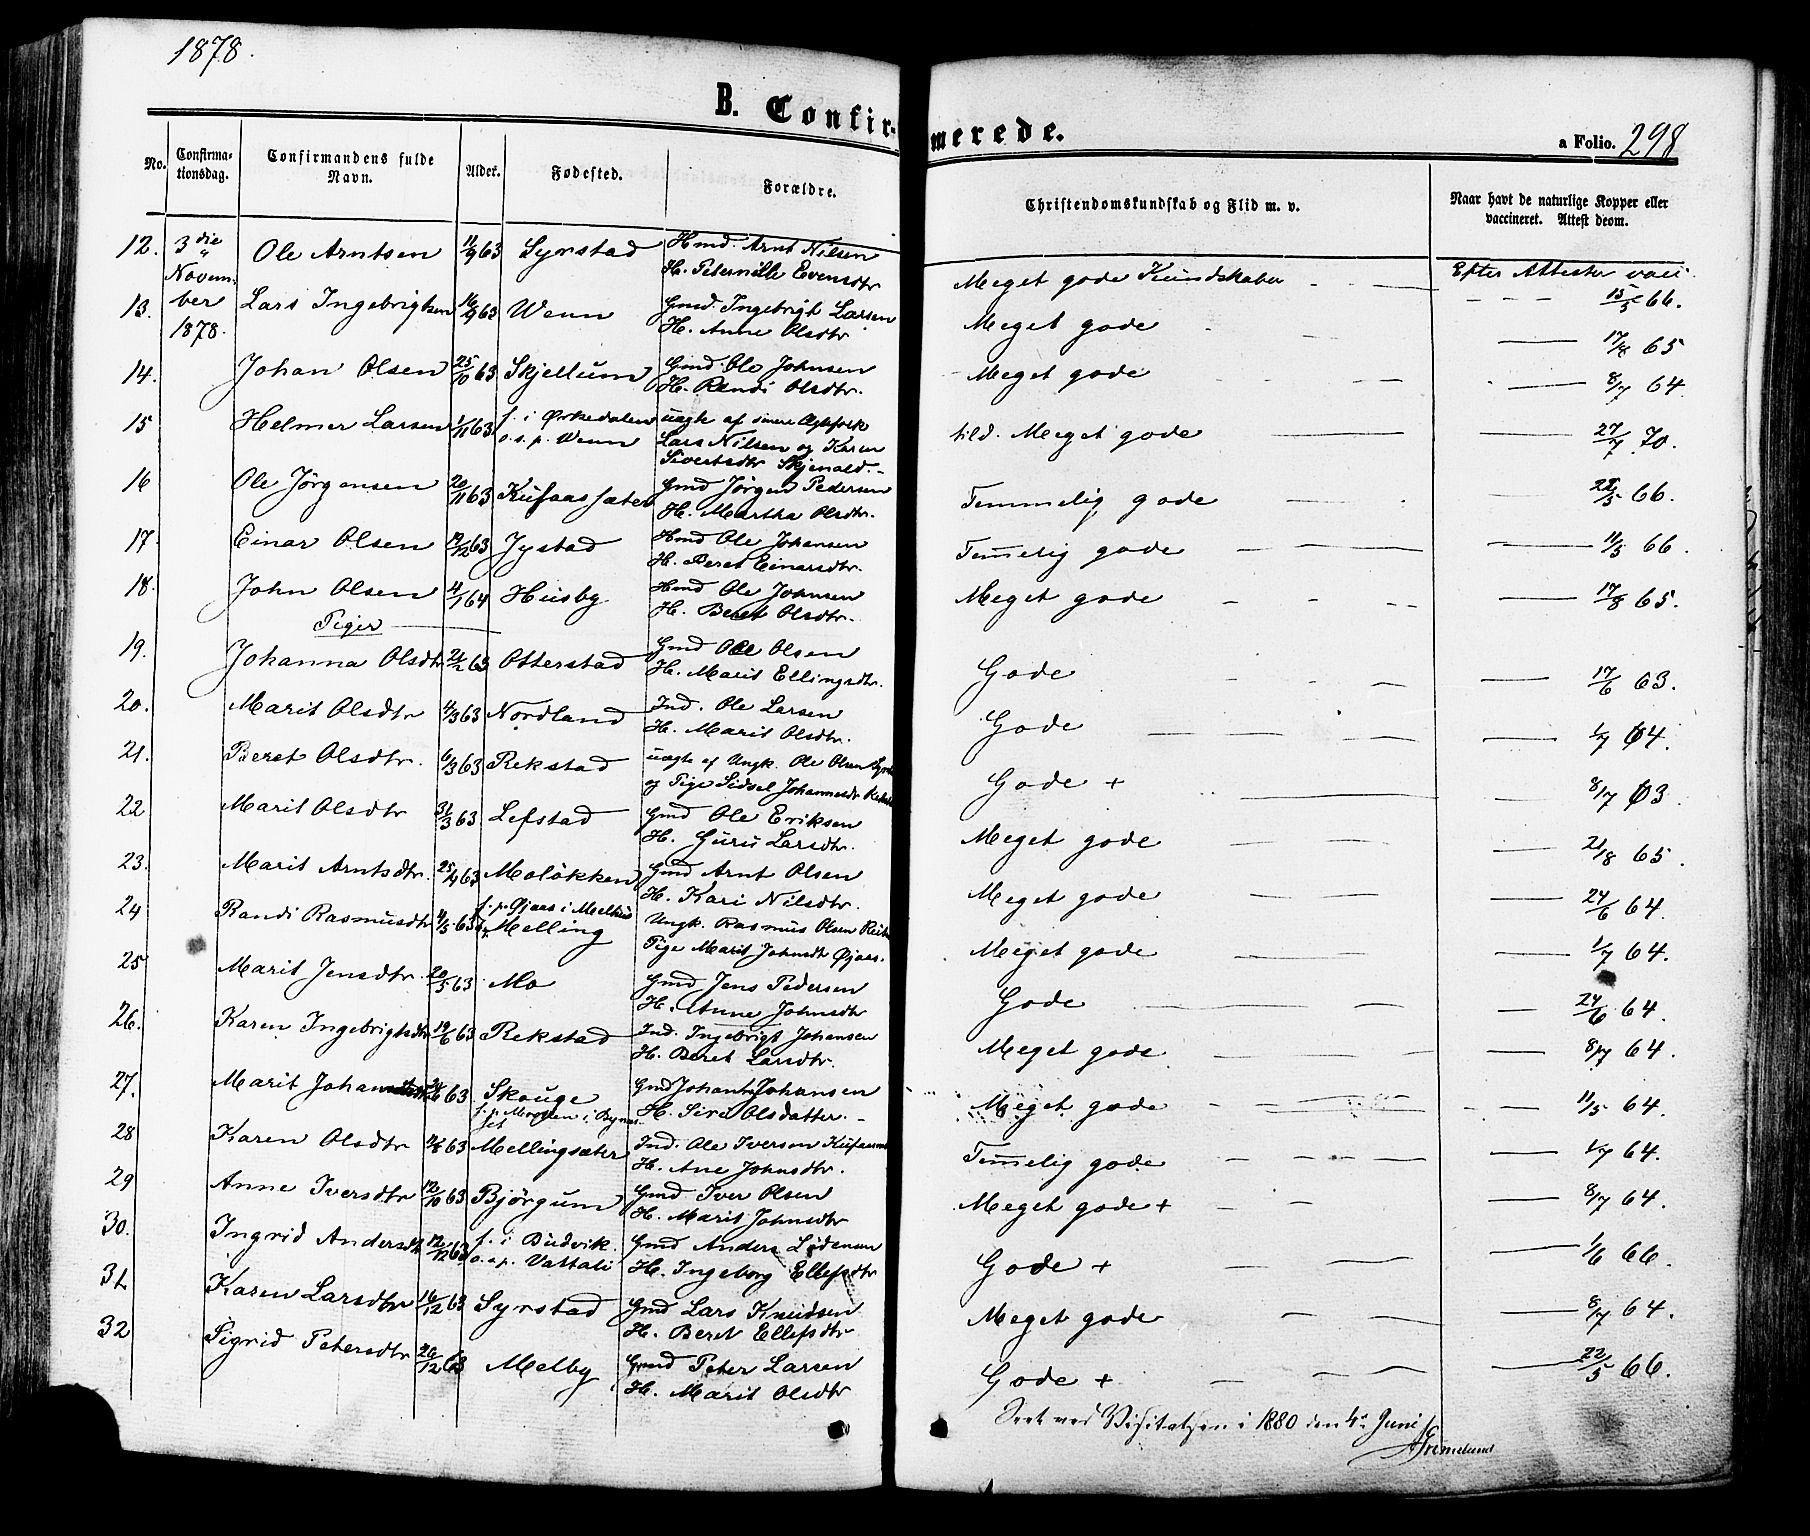 1878.
B. Confirmerede.
a Folio. 298
No. Confirmationsdag. Confirmandens fulde Navn. Alder. Fødested. Forældre. Christendomskundskab og Flid m. v. Naar havt de naturlige Kopper eller vaccineret. Attest deom.
12. 3die November 1878. Ole Arntsen 11/9 63 Syrstad Hmd. Arnt Nilsen H. Peternille Evensdtr Meget gode Kundskaber Efter Attester vacc. 15/5 66.
13. Lars Ingebrigtsen 16/9 63 Wenn Gmd. Ingebrigt Larsen H. Anne Olsdtr Meget gode 17/8 65
14. Johan Olsen 25/10 63 Skjellum Gmd Ole Johnsen H. Randi Olsdtr. Meget gode 8/7 64
15 Helmer Larsen 1/11 63 f. i Ørkedalen o. s. p. Wenn uægte af Lars Nilsen og Karen Sivertsdtr Skjenald. tild. Meget gode 27/7 70.
16 Ole Jørgensen 20/11 63 Kufaassæter Gmd Jørgen Pedersen H. Martha Olsdtr. Temmelig gode 22/5 66.
17. Einar Olsen 19/12 63 Jystad Hmd Ole Johansen H. Beret Einarsdtr. Temmelig gode 11/5 66.
18. John Olsen 4/1 64 Husby Hmd Ole Johnsen H. Beret Olsdtr. Meget gode 17/8 65.
Piger
19. Johanna Olsdtr 21/2 63 Otterstad Gmd Ole Olsen H. Marit Ellingsdtr. Gode 17/6 63.
20. Marit Olsdtr 4/3 63 Nordland Ind. Ole Larsen H. Marit Olsdtr. Gode 1/7 64.
21. Beret Olsdtr. 6/3 63 Rekstad uægte af Ungk. Ole Olsen og Pige Sidsel Johannesdtr Gode + 8/7 63.
22 Marit Olsdtr 31/3 63 Lefstad Gmd Ole Eriksen H. Guru Larsdtr. Meget gode 21/8 65.
23. Marit Arntsdtr. 25/4 63 Moløkken Gmd Arnt Olsen H. Kari Nilsdtr. Meget gode 24/6 64.
24 Randi Rasmusdtr 4/5 63 f. p. Øjaas i Melhus Melling Ungk. Rasmus Olsen Pige Marit Johnsdtr Øjaas. Meget gode 1/7 64.
25 Marit Jensdtr. 20/5 63 Mo Gmd Jens Pedersen H. Anne Johnsdtr Gode 24/6 64.
26. Karen Ingebrigtsdtr 19/6 63 Rekstad Ind. Ingebrigt Johansen H. Beret Larsdtr. Meget gode 8/7 64.
27. Marit 63 Skouge Gmd Johan Johansen H. Siri Olsdatter. Meget gode 11/5 64.
28 Karen Olsdtr 63 Mellingsæter Ind. Ole Iversen H. Ane Johnsdtr. Temmelig gode 1/7 64.
29 Anne Iversdtr 12/10 63 Bjørgum Gmd Iver Olsen H. Marit Johnsdtr Meget gode + 8/7 64.
30. Ingrid Andersdtr 12/12 63 f. i Budvik. o. s. p. Vattali Gmd Anders H. Ingeborg Ellefsdtr Gode + 1/6 66.
31. Karen Larsdtr 16/12 63 Syrstad Gmd Lars Knudsen H. Beret Ellefsdtr Meget gode 8/7 64.
32 Sigrid Petersdtr 26/12 63 Melby Gmd Peter Larsen H. Marit Olsdtr Gode + 22/5 66.
Seet ved Visitatsen i 1880 den 4de Juni
Grimelund